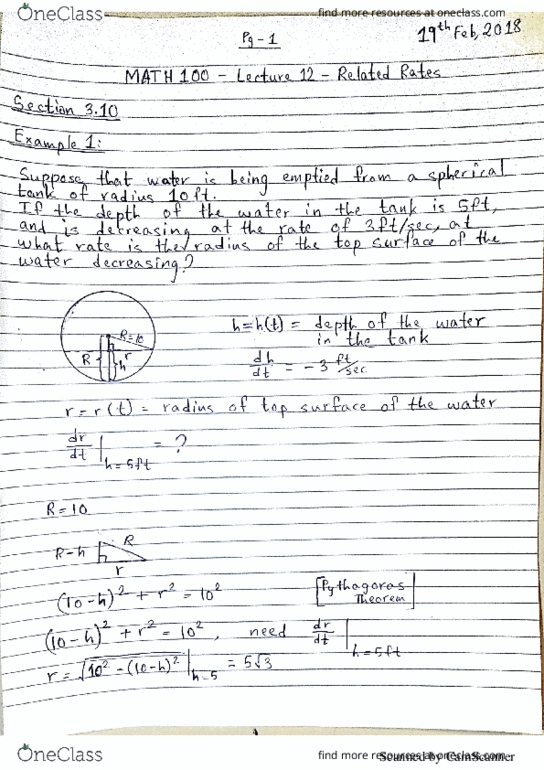 OneClass
find more resources at oneclass.com
Pg-1
19th Feb, 2018
MATH 100 - Lecture 12 - Related Rates
Section 3.10
Example 1:
Suppose that water is being emptied from a spherical
tank of radius 10ft.
If the depth of the water in the tank is 5ft,
and is decreasing at the rate of 3ft/sec, at
what rate is the radius of the top surface of the
water decreasing?
R=10
R { } h r
h=h(t) = depth of the water
in the tank
dh/dt = -3 ft/sec
r=r(t) = radius of top surface of the water
dr/dt |h=5ft = ?
R=10
R-h R
r
(10-h)² + r² = 10² [Pythagoras Theorem]
(10-h)² + r² = 10², need dr/dt |h=5ft
r = √10²-(10-h)² |h=5 = 5√3
OneClass
find more resources at oneclass.com
Scanned by CamScanner